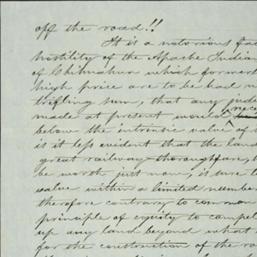 off the road!!
It is a notorious fac
hostility of the Apache Indian
of Chihuahua which former
high price are to be had n
trifling sum, that any jud
made at present would
below the intrinsic value of
is it less evident that the lan
great railway thoroughfare,
be worth just now, is sure t
value within a limited number
therefore contrary to common
principle of equity to compel
up any land beyond what
for the construction of the ro